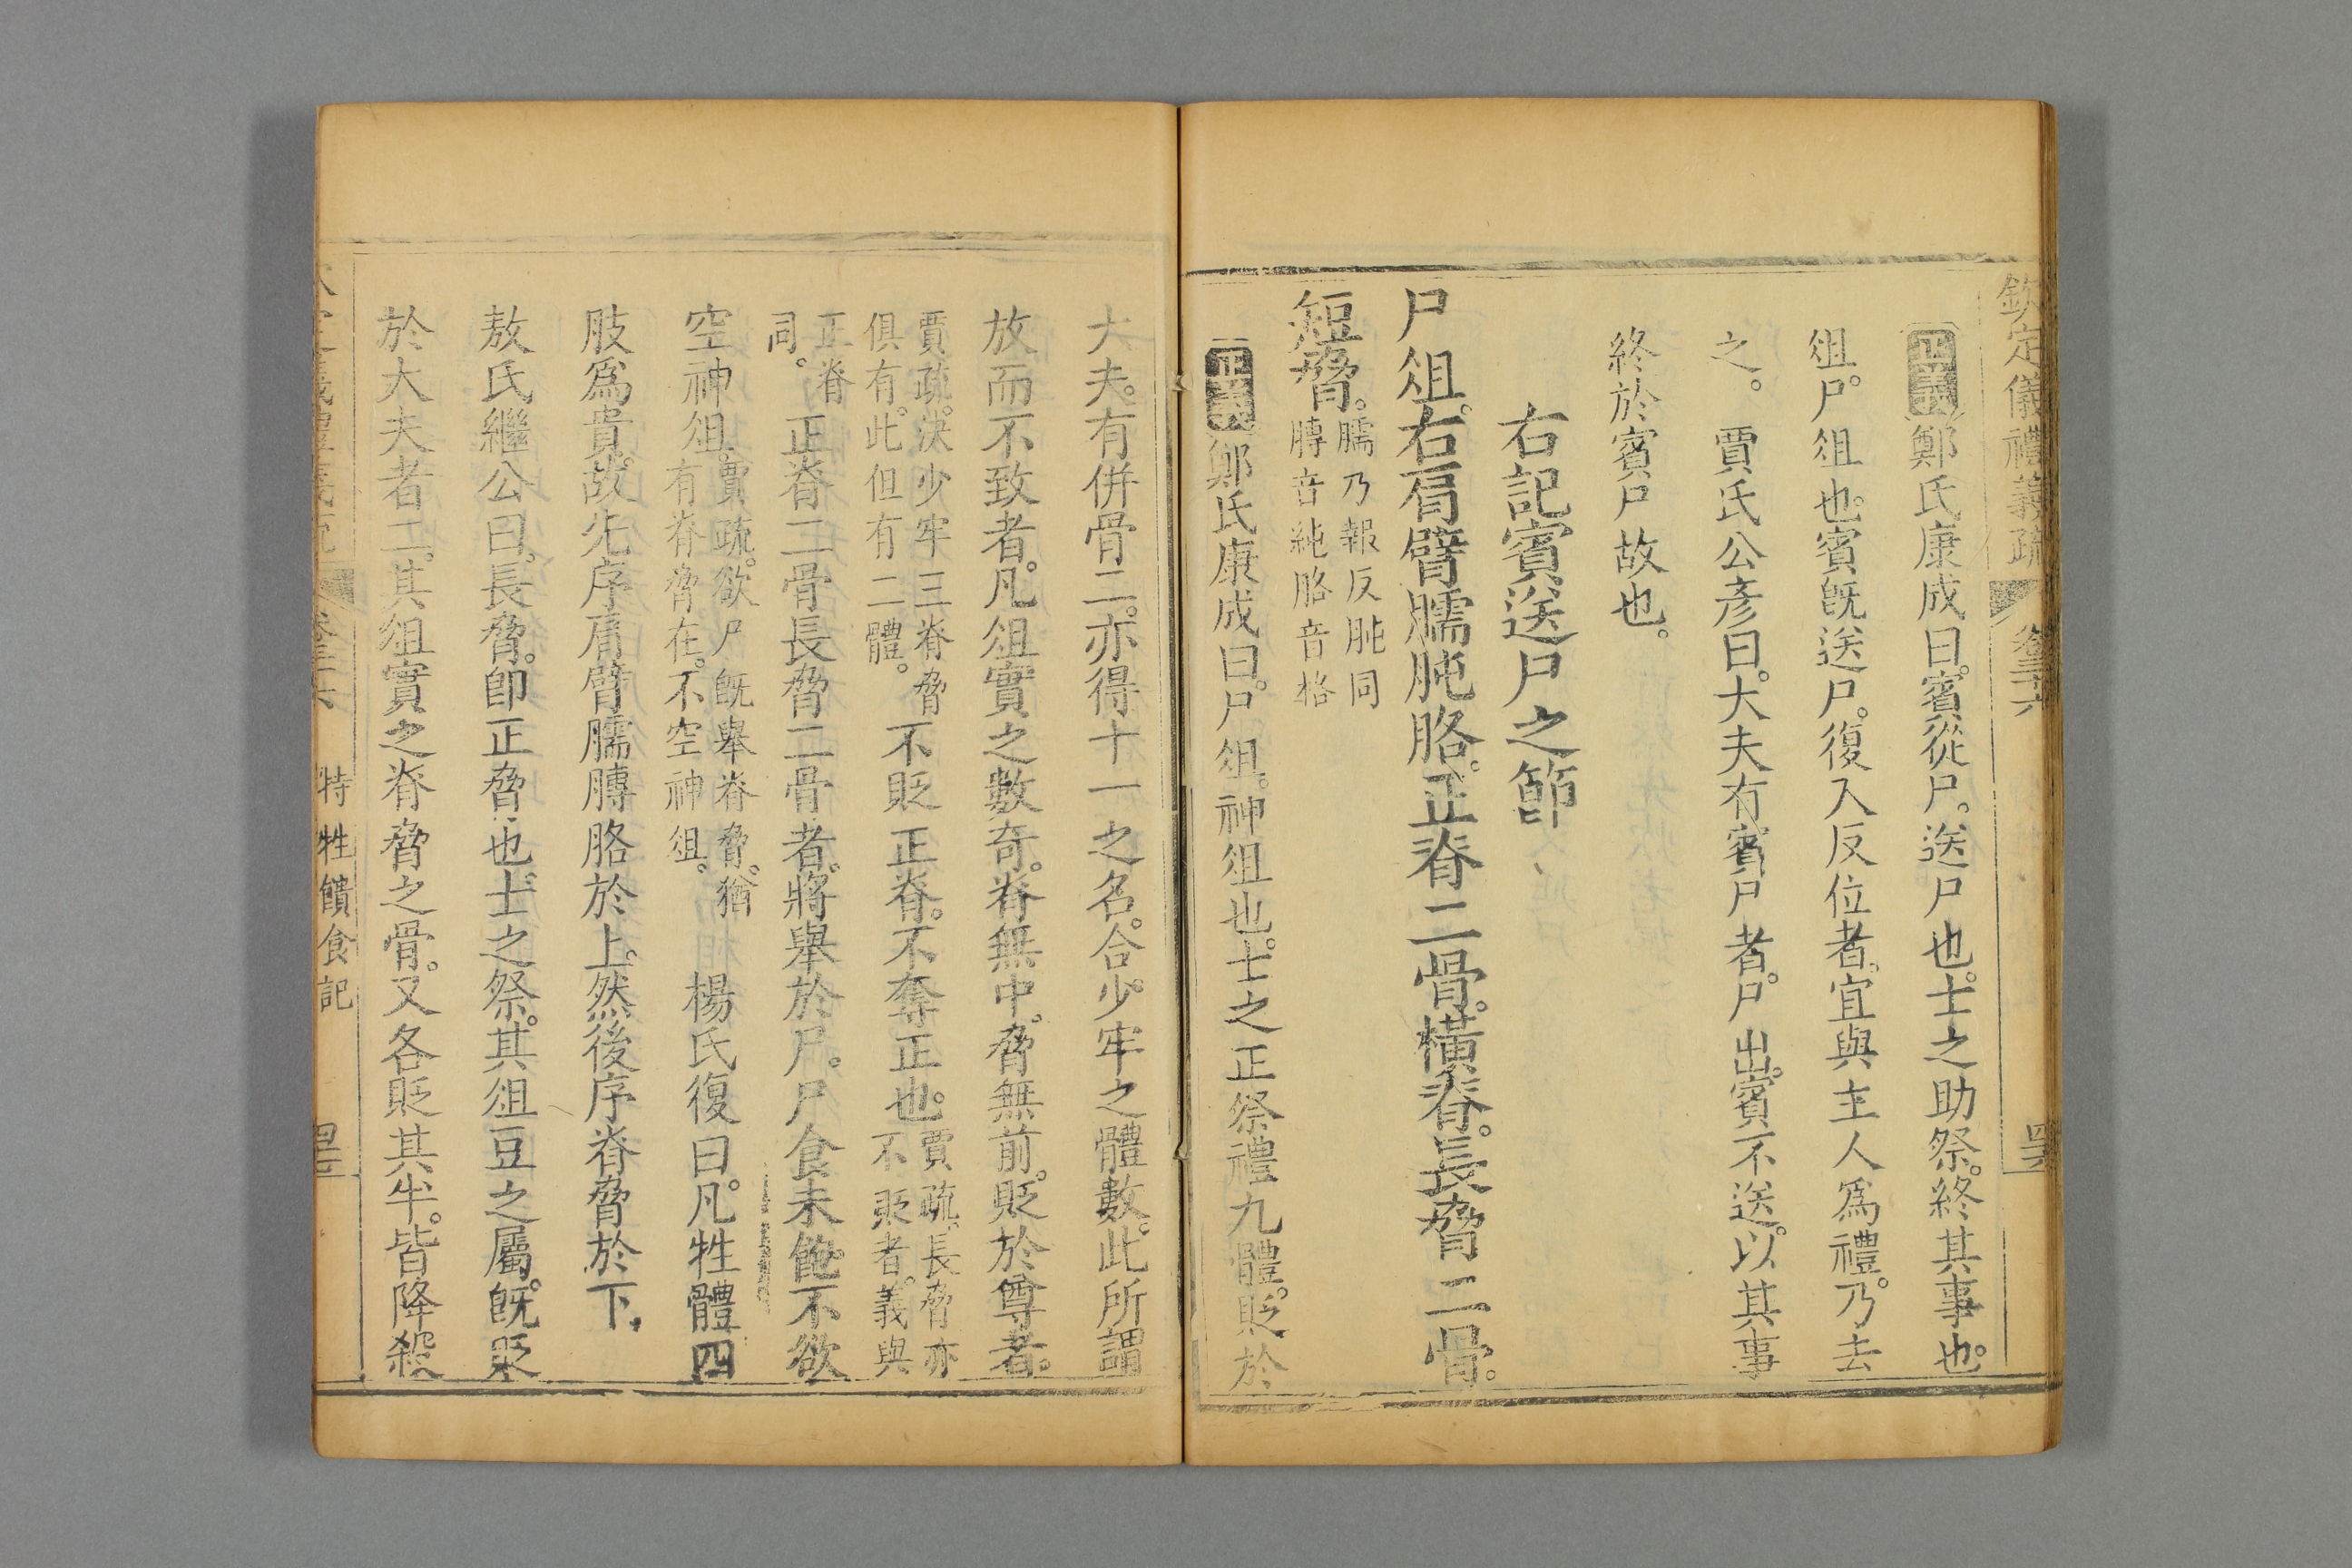 欽定儀禮義疏 卷三十六 四六
正義鄭氏康成曰。賓從尸。送尸也。士之助祭。終其事也。
俎。尸俎也。賓旣送尸。復入反位者。宜與主人爲禮。乃去
之。 賈氏公彥曰。大夫有賓尸者。尸出。賓不送。以其事
終於賓尸故也。
右記賓送尸之節
尸俎。右肩臂臑肫胳。正脊二骨。橫脊。長脅二骨。
短脅。臑乃報反肫同
膊音純胳音格
正義鄭氏康成曰。尸俎。神俎也。士之正祭禮九體。貶於
大夫。有併骨二。亦得十一之名。合少牢之體數。此所謂
放而不致者。凡俎實之數奇。脊無中。脅無前。貶於尊者。
賈疏。決少牢三脊脅
俱有。此但有二體。
不貶正脊。不奪正也。
賈疏。長脅亦
不貶者。義與
正脊
同。
正脊二骨長脅二骨者。將舉於尸。尸食未飽。不欲
空神俎。
賈疏。欲尸旣舉脊脅。猶
有脊脅在。不空神俎。
楊氏復曰。凡牲體四
肢爲貴。故先序肩臂臑膊胳於上。然後序脊脅於下
敖氏繼公曰。長脅。卽正脅也。士之祭。其俎豆之屬。旣貶
於大夫者二。其俎實之脊脅之骨。又各貶其半。皆降殺
特牲饋食記